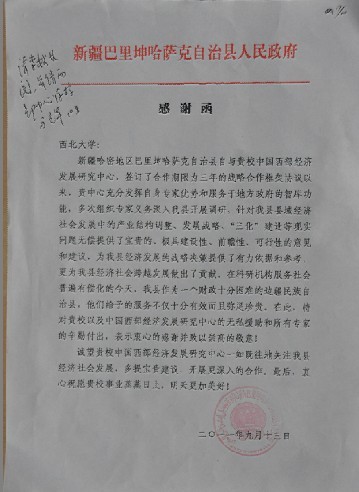 新疆巴里坤哈萨克自治县人民政府
感谢函
西北大学：
新疆哈密地区巴里坤哈萨克自治县自与贵校中国西部经济发
展研究中心，签订了合作期限为三年的战略合作框架法说以
来，贵中心充分发挥自身专家优势和服务于地方政府的智库功
能，多次组织专家义务深入我县开展调研，针对我县县域经济
社会发展中的产业结构调整、发展战略、“三化”建设等现实
问题无偿提供了宝贵的、极具建设性、前瞻性、可行性的意见
和建议，为我县经济发展的战略决策提供了有力依据和参考，
更为我县经济社会跨越发展做出了贡献。在科研机构服务社会
普遍有偿化的今天，我县作为一个财政十分困难的边疆民族自
治县，他们给予的服务不仅十分有效而且弥足珍贵。在此，特
对贵校以及中国西部经济发展研究中心的无私援助和所有专家
的辛勤付出，表示衷心的感谢并致以崇高的敬意！
诚望贵校中国西部经济发展研究中心一如既往地关注我县
经济社会发展，多提宝贵建议，开展更深入的合作。最后，真
心祝愿贵校事业蒸蒸日上，明天更加美好！
二〇一一年九月十三日